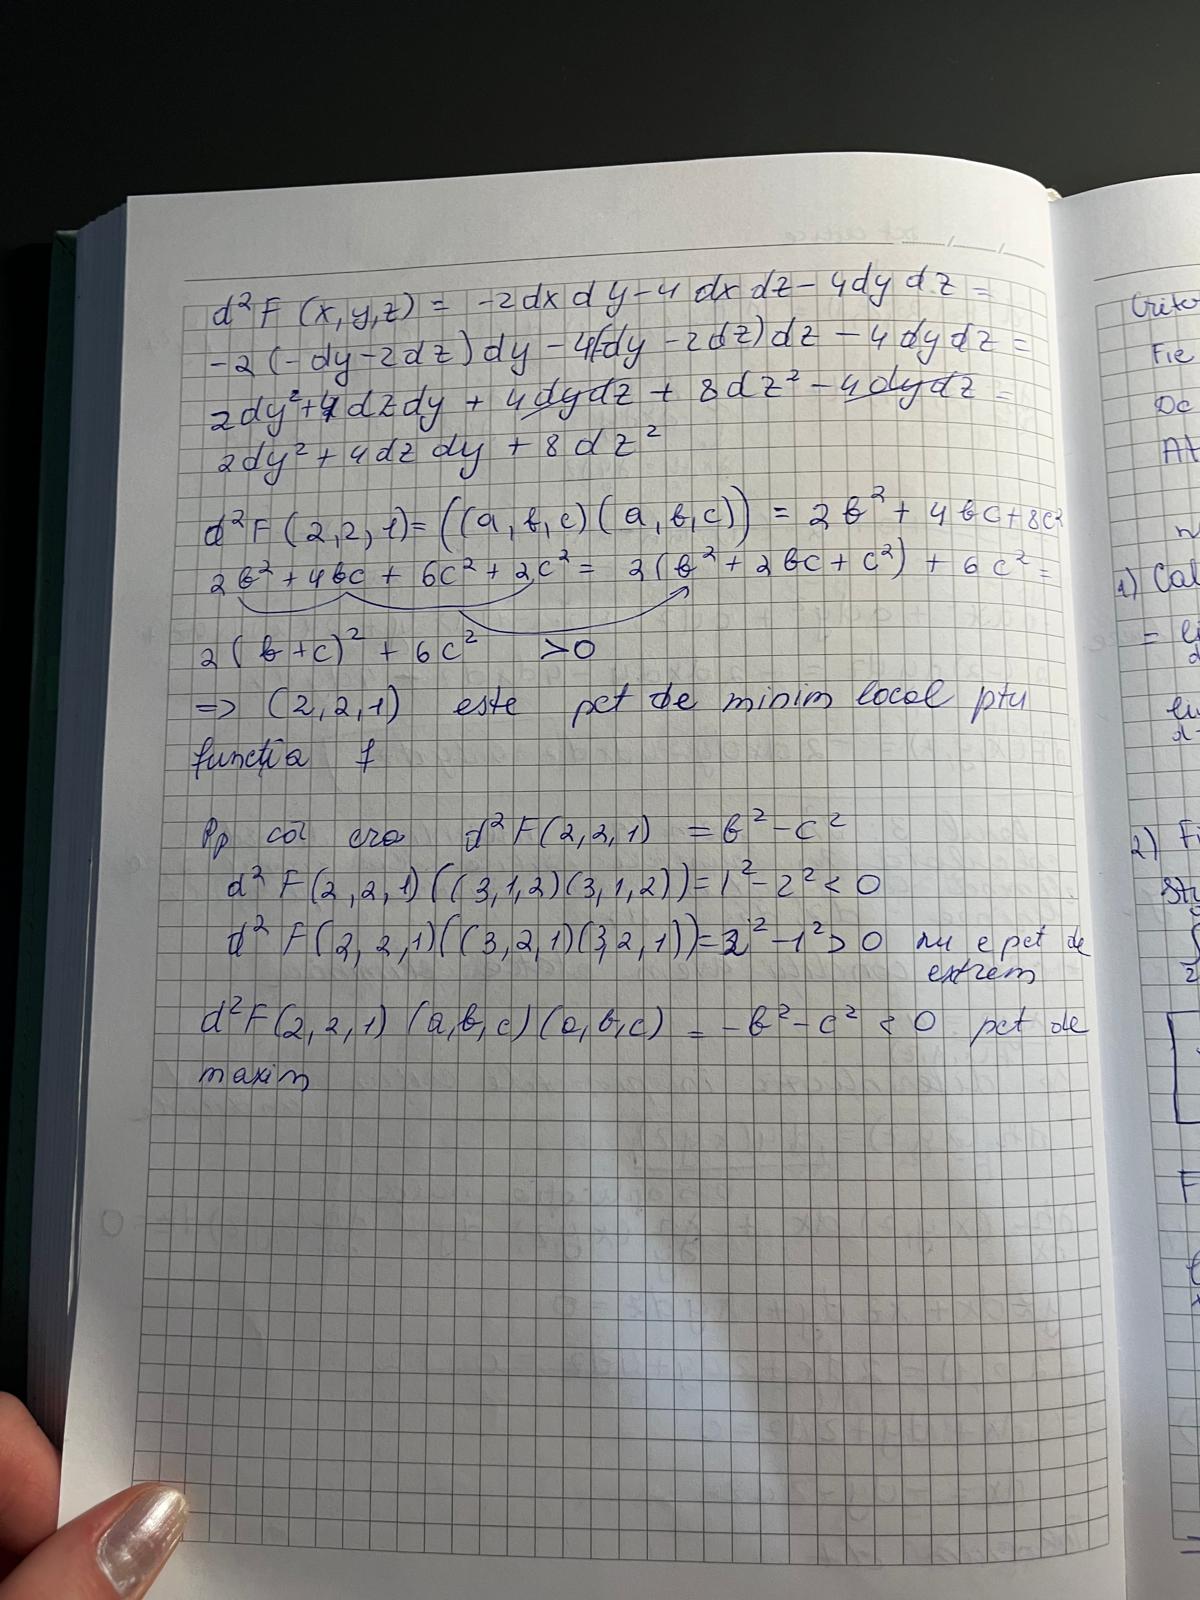 d²F (x,y,z) = -2dxdy-4dxdz-4dydz =
-2(-dy-2dz)dy-4(-dy-2dz)dz-4dydz =
2dy²+4dzdy+4dydz+8dz²-4dydz =
2dy²+4dzdy+8dz²
d²F(2,2,1)=((a,b,c)(a,b,c)) = 2b²+4bc+8c²
2b²+4bc+6c²+2c² = 2(b²+2bc+c²)+6c² =
2(b+c)²+6c² >0
=> (2,2,1) este pct de minim local ptu
funcția f
Pp că era d²F(2,2,1) = b²-c²
d²F(2,2,1)((3,1,2)(3,1,2))=1²-2²<0
d²F(2,2,1)((3,2,1)(3,2,1))=2²-1²>0 nu e pct de
extrem
d²F(2,2,1)(a,b,c)(a,b,c) = -b²-c² < 0 pct de
maxim
Fie
1) Cal
2) F